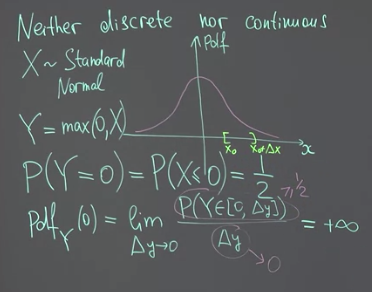 Neither discrete nor continuous
X ~ Standard Normal
Pdf
Y = max(0,X)
[ x₀ ) x₀+Δx
x
P(Y=0) = P(X≤0) = 1/2
Pdf_Y(0) = lim_{Δy→0} P(Y∈[0, Δy]) / Δy = +∞
≥ 1/2
→ 0